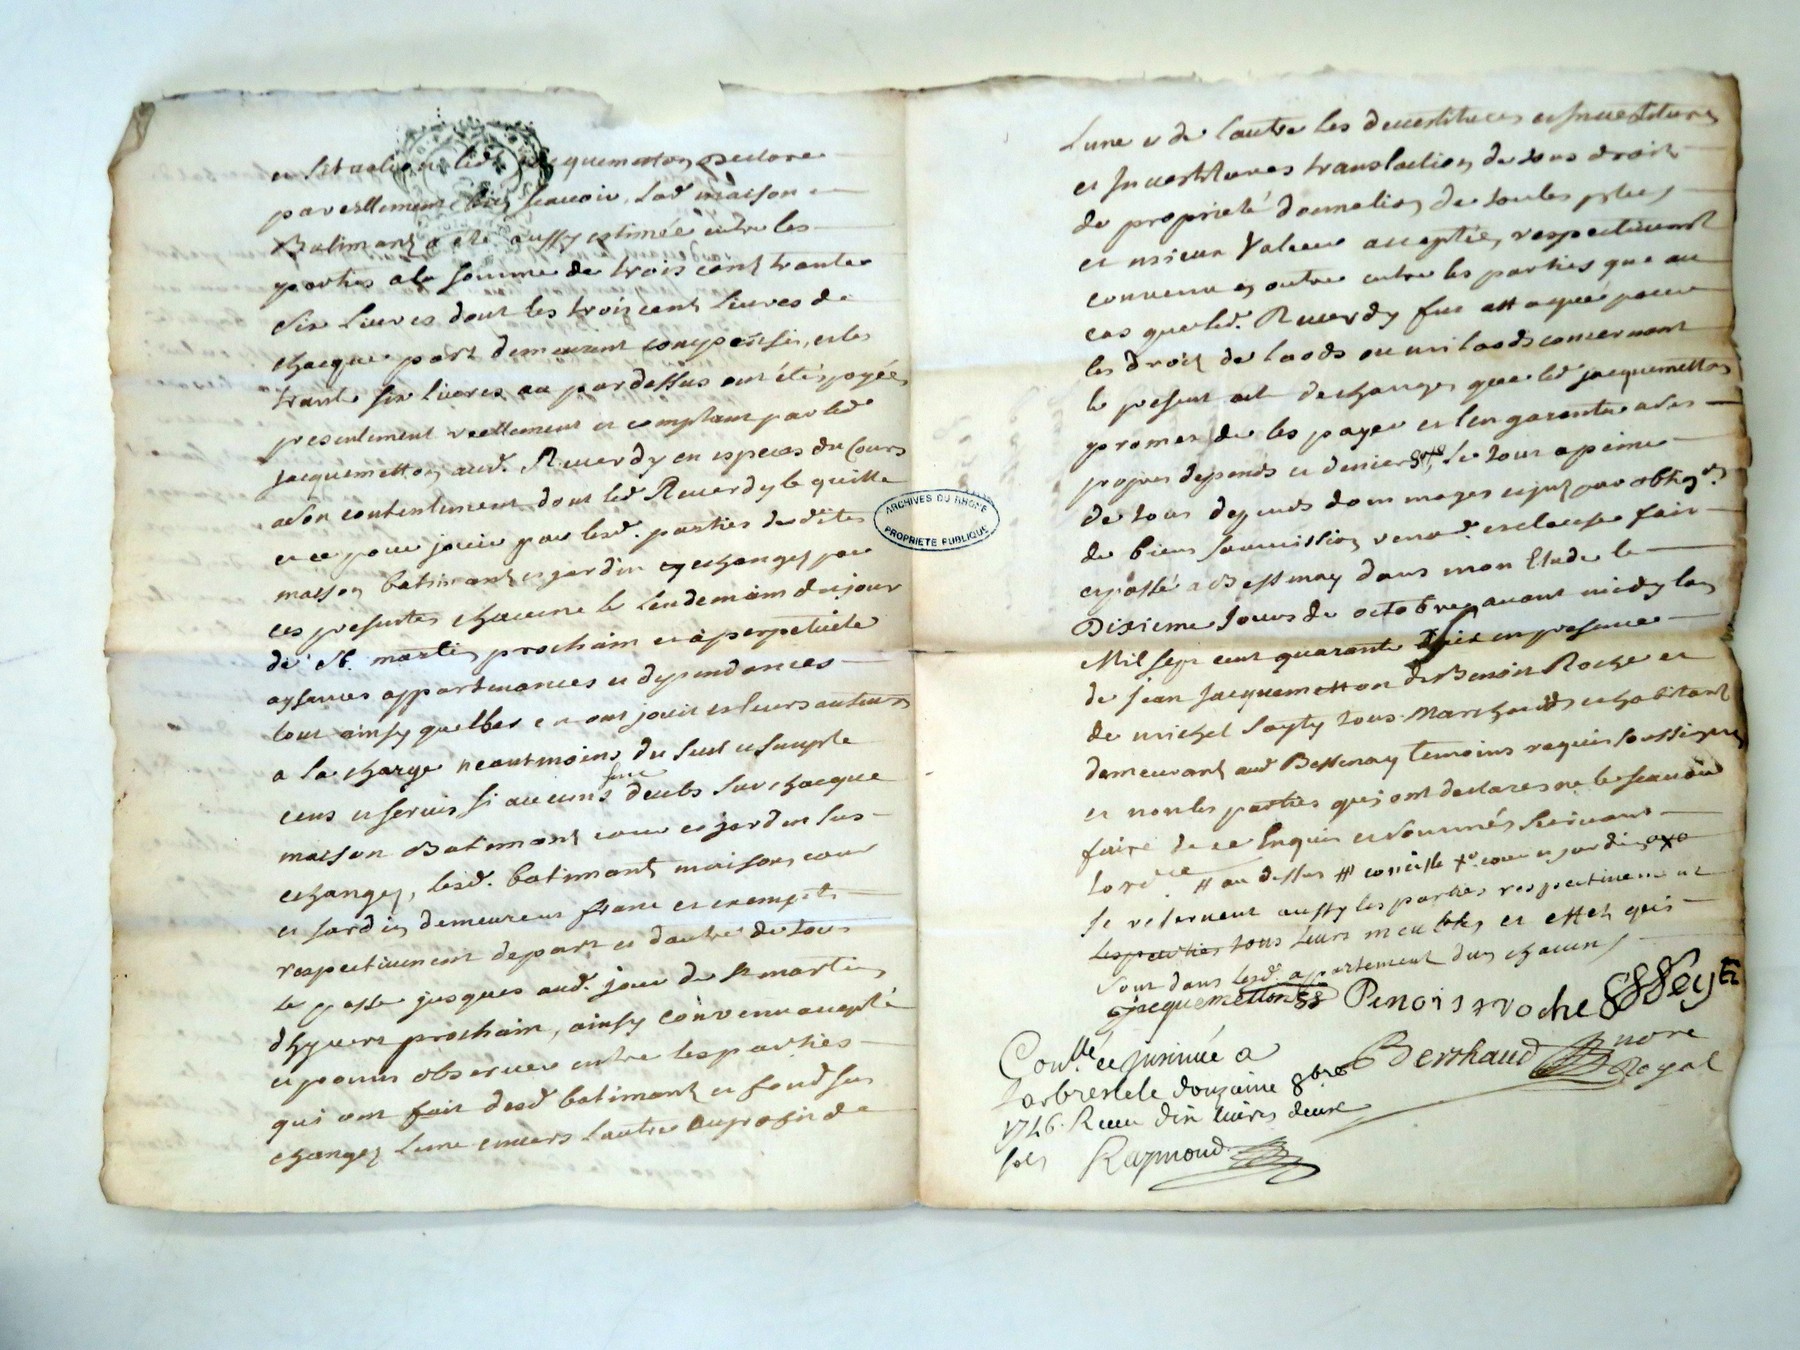 et situation led. jacquemetton declare
pareillement bien scavoir, lad maison et
Batimant a ete aussy estimée entre les
parties a la somme de trois cent trante
six livres dont les trois cent livres de
chacque part demeurent compensés, et les
trante six livres au pardessus ont été payées
presentement reellement et comptant par led
jacquemetton aud. Reverdy en especes du Cours
a son contentement dont led Reverdy le quitte
et ce pour jouir par lesd. parties desdites
maison batimant et jardin echangez par
ces presentes chacune le lendemain du jour
de St. martin prochain et à perpetuité
aysances appartenances et dependances
tout ainsy quelles en ont jouit et leurs auteurs
a la charge neantmoins du seul et simple
cens et servis si aucuns sont deubs sur chacque
maison Batimant cour et jardin sus
echangez, lesd. batimant maison cour
et jardin demeurent franc et exempts
respectivement de part et dautre de tout
le passé jusques aud. jour de st martin
dhyvert prochain, ainsy convenu accepté
et promis observer entre les parties
qui ont fait desd batimant et fond sus
changez Lune envers Lautre au profit de
Lune et de Lautre les devestitures et Investitures
et Investitures translation de tous droits
de proprieté donnation de toutes plus
et mieux Value acceptée, respectivement
convenu en outre entre les parties que au
cas que led. Reverdy fut attaqué pour
les droits de laods ou mi laods concernant
le present act dechange que led jacquemetton
promet de les payer et len garentir a ses
propres depends et deniers, Le tout a peine
de tous depends dommages et jnt par oblig.on
de biens soumission renon. et clause fait
et passé a Bessenay dans mon Etude le
Dixieme Jour de octobre avant midy lan
Mil sept cent quarante six en presence
de jean jacquemetton de Benoit Roche et
de michel Sayty tous Marchands et habitant
demeurant aud Bessenay temoins requis soussignes
et non les parties qui ont declarés ne le scavoir
faire de ce Enquis et sommés suivant
Lord.ce # au dessus # cour et jardin
se reservent aussy les parties respectivement
les parties tous leurs meubles et effets qui
sont dans lesd. appartement dun chacun
jacquemetton Benoist roche
Berthaud nore
Royal
Con.llé et insinué a
Larbresle le douzaine 8bre
1746. Receu dix livres deux
sols Raymond
ARCHIVES DU RHONE
PROPRIETE PUBLIQUE